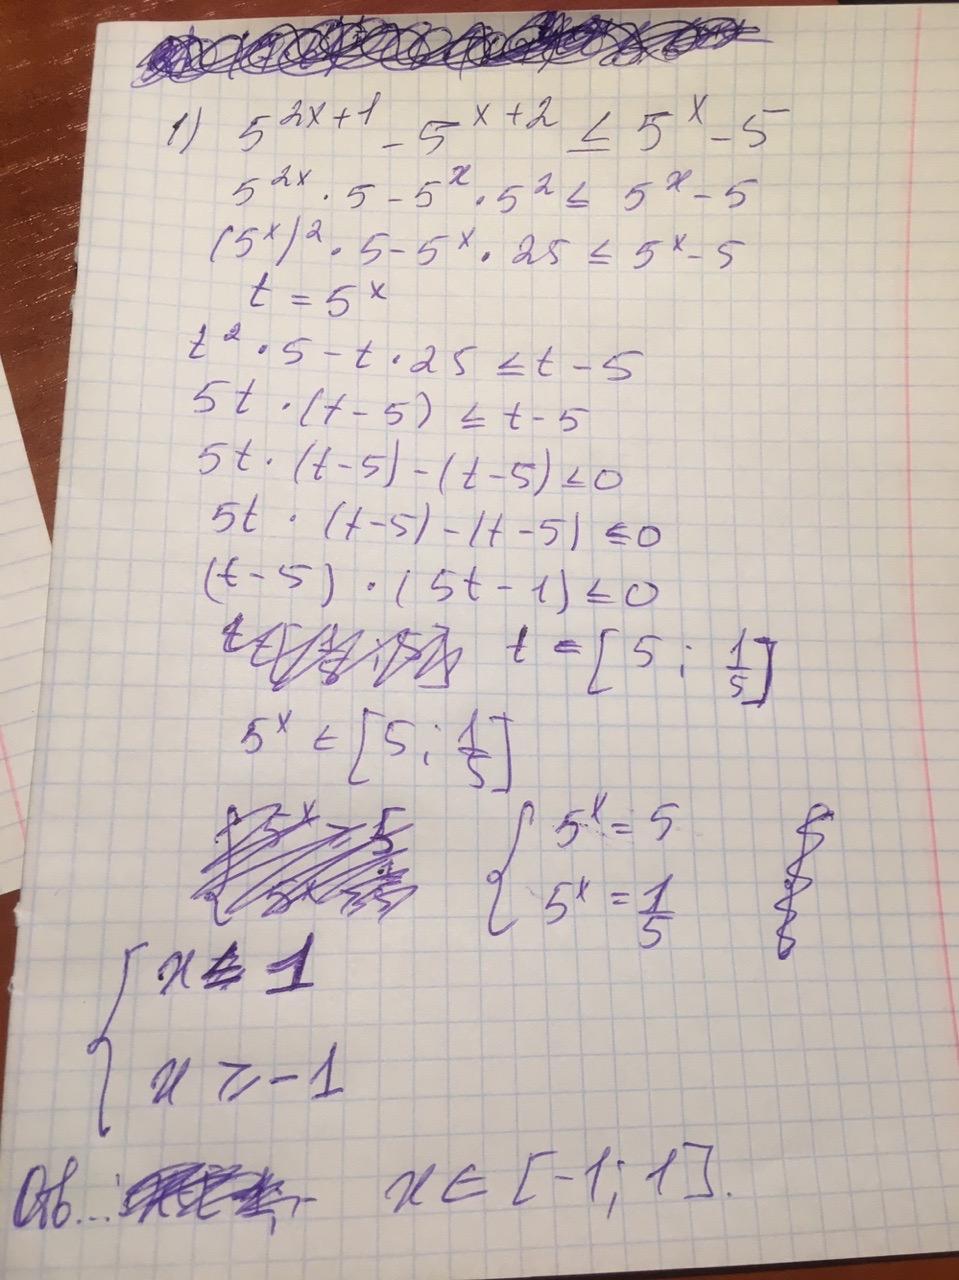 1) 5^{2x+1} - 5^{x+2} ≤ 5^x - 5
5^{2x} · 5 - 5^x · 5^2 ≤ 5^x - 5
(5^x)^2 · 5 - 5^x · 25 ≤ 5^x - 5
t = 5^x
t^2 · 5 - t · 25 ≤ t - 5
5t · (t - 5) ≤ t - 5
5t · (t - 5) - (t - 5) ≤ 0
5t · (t - 5) - (t - 5) ≤ 0
(t - 5) · (5t - 1) ≤ 0
t = [5; 1/5]
5^x ∈ [5; 1/5]
{ 5^x = 5
5^x = 1/5
{ x ≤ 1
x ≥ -1
Отв..: x ∈ [-1; 1].